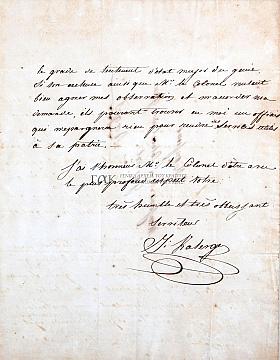 le grade de lieutenant d'état major du genie
Si son excellence ainsi que Mr. le Colonel veulent
bien agréer mes observations et m'accorder ma
demande, ils pourront trouver en moi un officier
que n'epargnera rien pour rendre des services utiles
à sa patrie.
J'ai l'honneur Mr. le Colonel d'être avec
le plus profond respect votre
très humble et très obeissant
Serviteur